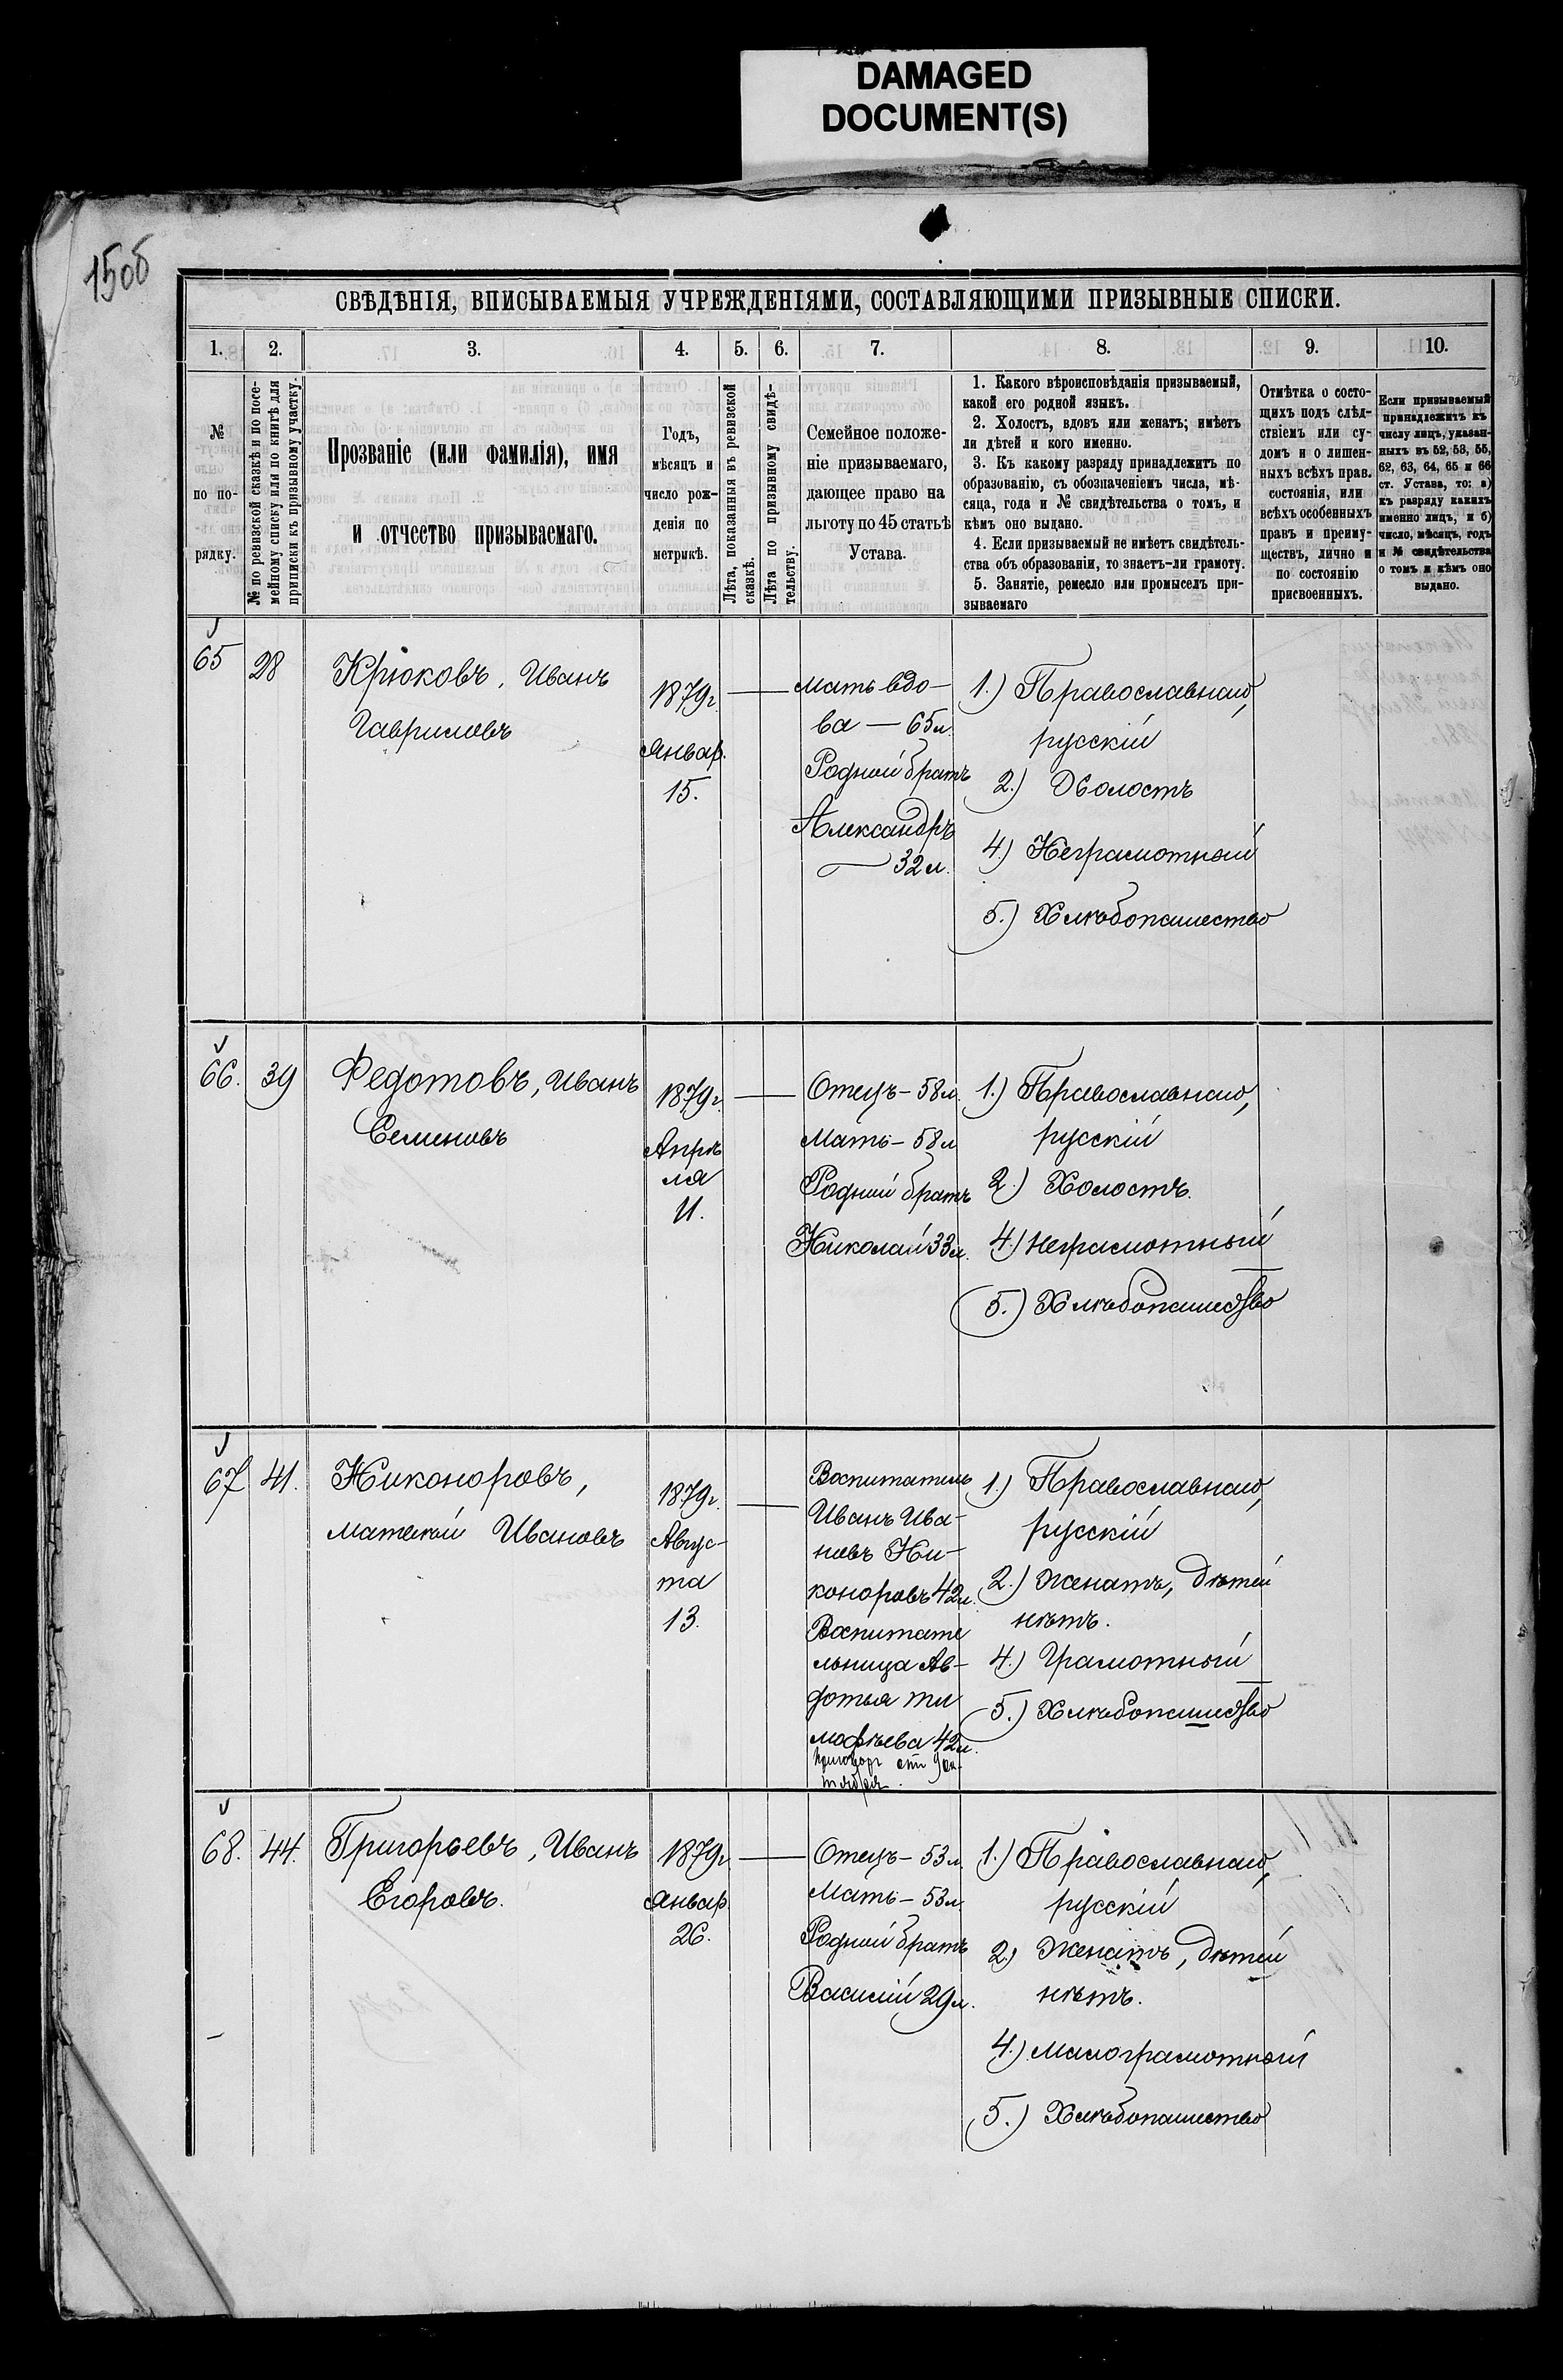 DAMAGED
DOCUMENT(S)
150б
СВѢДѢНІЯ, ВПИСЫВАЕМЫЯ УЧРЕЖДЕНІЯМИ, СОСТАВЛЯЮЩИМИ ПРИЗЫВНЫЕ СПИСКИ.
1. 2. 3. 4. 5. 6. 7. 8. 9. 10.
№
по по-
рядку.
№ по ревизской сказкѣ и по посе-
мейному списку или по книгѣ для
приписки къ призывному участку.
Прозваніе (или фамилія), имя
и отчество призываемаго.
Годъ,
мѣсяцъ и
число рож-
денія по
метрикѣ.
Лѣта, показанныя въ ревизской
сказкѣ.
Лѣта по призывному свидѣ-
тельству.
Семейное положе-
ніе призываемаго,
дающее право на
льготу по 45 статьѣ
Устава.
1. Какого вѣроисповѣданія призываемый,
какой его родной языкъ.
2. Холостъ, вдовъ или женатъ; имѣетъ
ли дѣтей и кого именно.
3. Къ какому разряду принадлежитъ по
образованію, съ обозначеніемъ числа, мѣ-
сяца, года и № свидѣтельства о томъ, и
кѣмъ оно выдано.
4. Если призываемый не имѣетъ свидѣтель-
ства объ образованіи, то знаетъ-ли грамоту.
5. Занятіе, ремесло или промыселъ при-
зываемаго
Отмѣтка о состо-
ящихъ подъ слѣд-
ствіемъ или су-
домъ и о лишен-
ныхъ всѣхъ прав.
состоянія, или
всѣхъ особенныхъ
правъ и преиму-
ществъ, лично и
по состоянію
присвоенныхъ.
Если призываемый
принадлежитъ къ
числу лицъ, указан-
ныхъ въ 52, 53, 55,
62, 63, 64, 65 и 66
ст. Устава, то: а)
къ разряду какихъ
именно лицъ, и б)
число, мѣсяцъ, годъ
и № свидѣтельства
о томъ и кѣмъ оно
выдано.
65 28
Крюковъ, Иванъ
Гавриловъ
1879г.
Январ.
15.
Мать вдо-
ва — 65 л.
Родной братъ
Александръ
— 32 л.
1.) Православнаго,
русскій
2.) Холостъ
4.) Неграмотный
5.) Хлѣбопашество
66. 39
Федотовъ, Иванъ
Семеновъ
1879г.
Апрѣ
ля
11.
Отецъ – 58 л.
Мать – 58 л
Родной братъ
Николай 33 л.
1.) Православнаго,
русскій
2.) Холостъ.
4.) Неграмотный
5.) Хлѣбопашество
67 41.
Никоноровъ,
Матвѣй Ивановъ
1879г.
Авгус-
та
13.
Воспитатель
Иванъ Ива-
новъ Ни-
коноровъ 42 л.
Воспитате
льница Ав-
дотья Ти
мофѣева 42 л.
Приговоръ отъ 9 ок-
тября.
1.) Православнаго,
русскій
2.) Женатъ, дѣтей
нѣтъ.
4.) Грамотный
5.) Хлѣбопашество
68. 44.
Григорьевъ, Иванъ
Егоровъ.
1879г
Январ.
26.
Отецъ – 53 л.
Мать – 53 л.
Родной братъ
Василій 29 л.
1.) Православнаго,
русскій
2.) Женатъ, дѣтей
нѣтъ.
4.) Малограмотный
5.) Хлѣбопашество